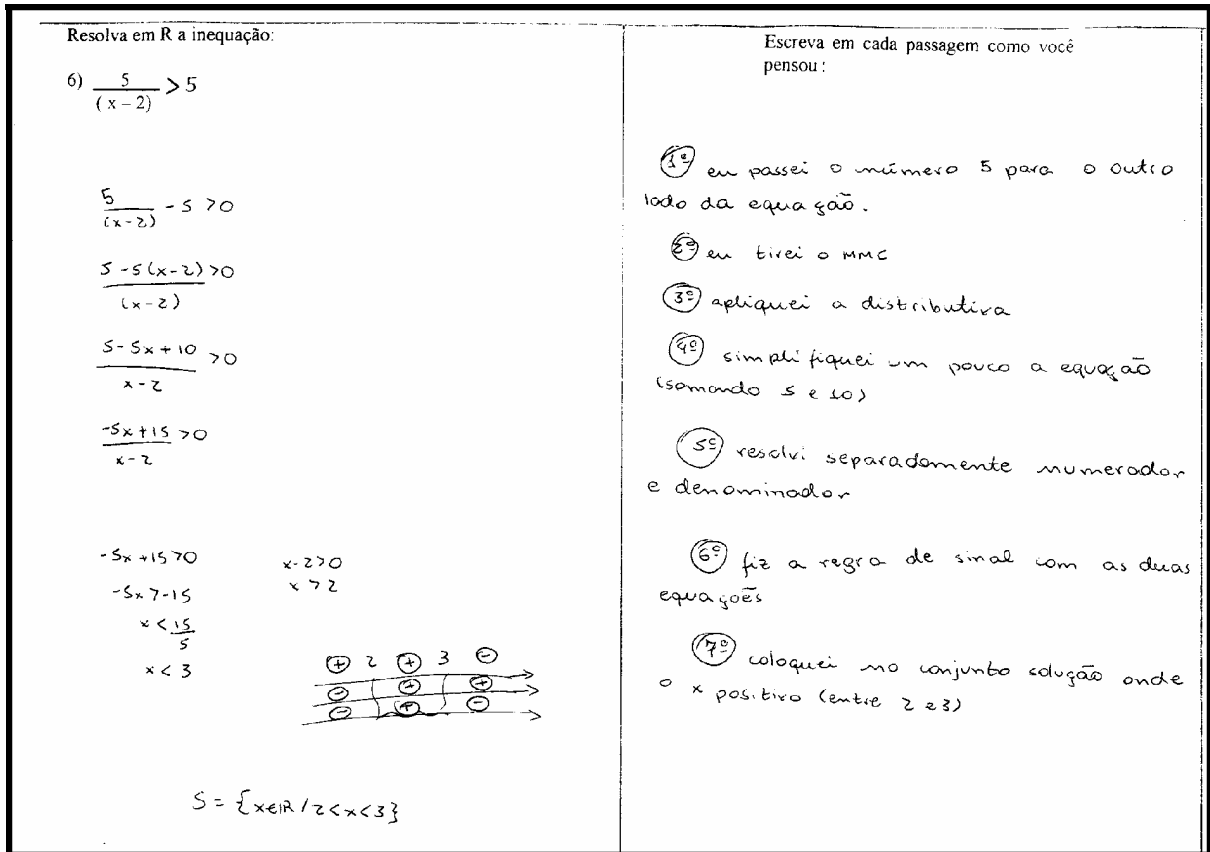 Resolva em R a inequação:
6) 5/(x – 2) > 5
5/(x-2) - 5 >0
5 - 5(x-2)/(x-2) >0
5 - 5x + 10/x-2 >0
-5x+15/x-2 >0
-5x +15>0
x-2>0
-5x >-15
x > 2
x < 15/5
x < 3
+ 2 + 3 -
- + +
- + -
S = {x∈IR / 2<x<3}
Escreva em cada passagem como você
pensou :
1º eu passei o número 5 para o outro
lado da equação.
2º eu tirei o MMC
3º apliquei a distributiva
4º simplifiquei um pouco a equação
(somando 5 e 10)
5º resolvi separadamente numerador
e denominador
6º fiz a regra de sinal com as duas
equações
7º coloquei no conjunto solução onde
o x positivo (entre 2 e 3)